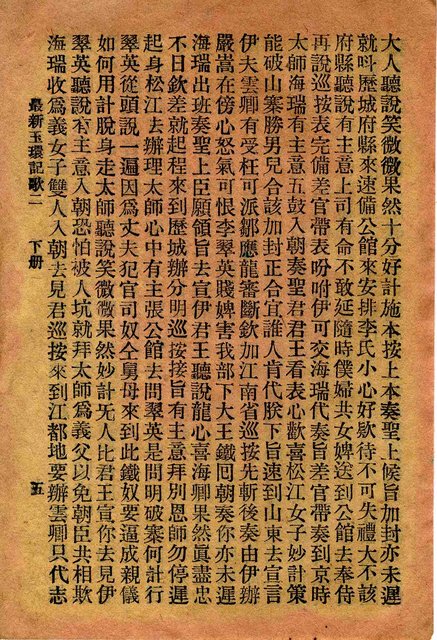 大人聽說笑微微果然十分好計施本按上本奏聖上候旨加封亦未遲
就呌歷城府縣來速備公館來安排李氏小心好欵待不可失禮大不該
府縣聽說有主意上司有命不敢延隨時僕婦共女婢送到公館去奉侍
再說巡按表完備差官帶表吩咐伊可交海瑞代奏旨差官帶奏到京時
太師海瑞有主意五鼓入朝奏聖君君王看表心歡喜松江女子妙計策
能破山寨勝男兒合該加封正合宜誰人肯代朕下旨速到山東去宣言
伊夫雲卿有受枉可派鄒應龍審斷欽加江南省巡按先斬後奏由伊辦
嚴嵩在傍心怒氣可恨李翠英賤婢害我部下大王鐵囘朝奏你亦未遲
海瑞出班奏聖上臣願領旨去宣伊君王聽說龍心喜海卿果然眞盡忠
不日欽差就起程來到歷城辦分明巡按接旨有主意拜別恩師勿停遲
起身松江去辦理太師心中有主張公館去問翠英是問明破案何計行
翠英從頭說一遍因爲丈夫犯官司奴仝舅母來到此鐵奴要逼成親儀
如何用計脫身走太師聽說笑微微果然妙計死人比君王宣你去見伊
翠英聽說有主意入朝恐怕被人坑就拜太師爲義父以免朝臣共相欺
海瑞收爲義女子雙人入朝去見君巡按來到江都地要辦雲卿只代志
最新玉環記歌二　下册　五